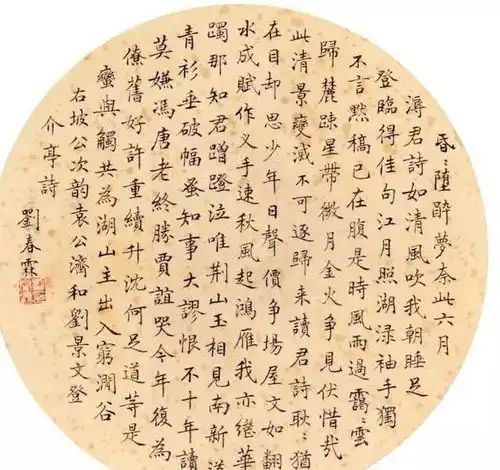 昏〻墮醉夢奈此六月
溽君詩如清風吹我朝睡足
登臨得佳句江月照湖渌袖手獨
不言黙稿已在腹是時風雨過靄〻雲
歸麓疎星帶微月金火爭見伏惜哉
此清景變滅不可逐歸来讀君詩耿〻猶
在目却思少年日聲價爭場屋文如翻
水成賦作叉手速秋風起鴻雁我亦繼華
躅那知君蹭蹬泣唯荊山玉相見南新道
青衫垂破幅蚤知事大謬恨不十年讀
莫嫌馮唐老終勝賈誼哭今年復為
僚舊好許重續升沈何足道等是
蠻與觸共為湖山主出入窮澗谷
右坡公次韵袁公濟和劉景文登
介亭詩
劉春霖